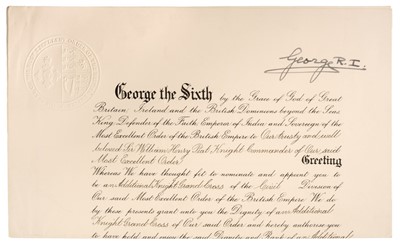 George R.I.
George the Sixth by the Grace of God of Great
Britain, Ireland and the British Dominions beyond the Seas
King, Defender of the Faith, Emperor of India and Sovereign of the
Most Excellent Order of the British Empire to Our trusty and well
beloved Sir William Henry Peat Knight Commander of Our said
Most Excellent Order
Greeting
Whereas We have thought fit to nominate and appoint you to
be an Additional Knight Grand Cross of the Civil Division of
Our said Most Excellent Order of the British Empire We do
by these presents grant unto you the Dignity of an Additional
Knight Grand Cross of Our said Order and hereby authorise you
to have hold and enjoy the said Dignity and Rank of an Additional